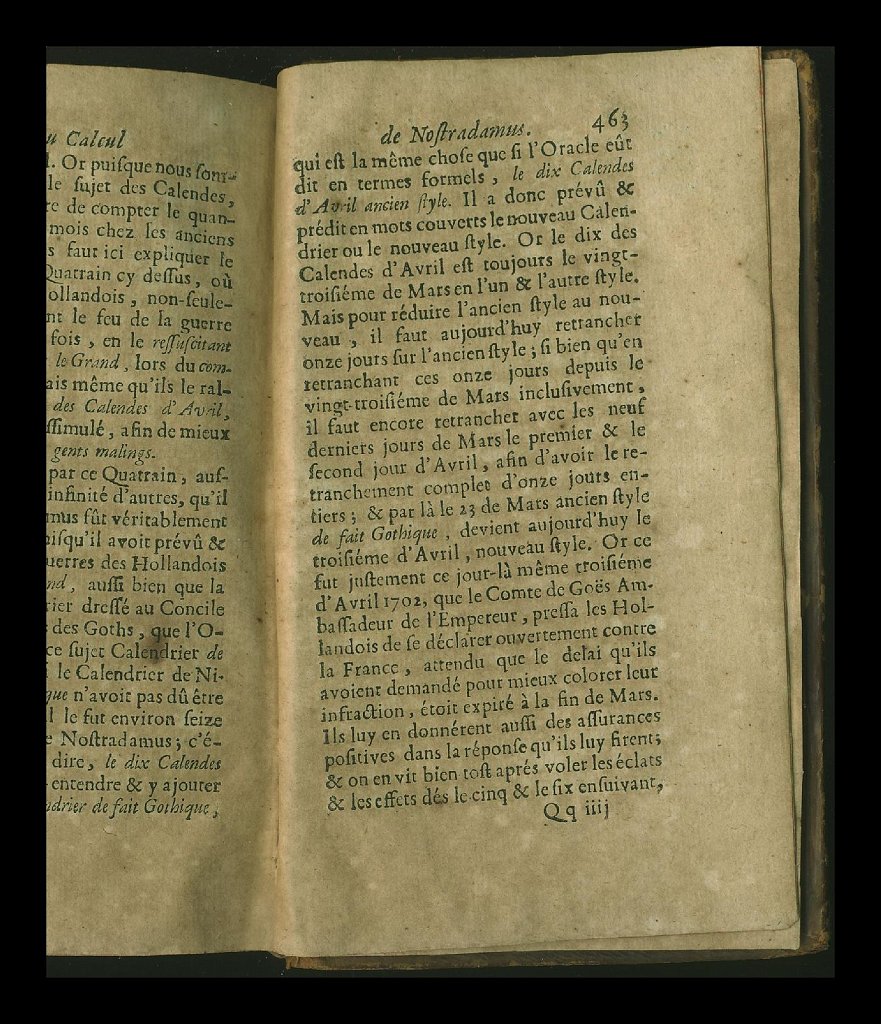 u Calcul
l. Or puiſque nous ſom-
le ſujet des Calendes,
re de compter le quan-
mois chez les anciens
s faut ici expliquer le
Quatrain cy deſſus, où
ollandois, non-ſeule-
nt le feu de la guerre
fois, en le reſſuſcitant
le Grand, lors du com-
ais même qu'ils le ral-
des Calendes d'Avril,
ſſimulé, afin de mieux
gents malings.
par ce Quatrain, auſ-
infinité d'autres, qu'il
mus fût véritablement
uiſqu'il avoit prévû &
uerres des Hollandois
nd, auſſi bien que la
rier dreſſé au Concile
des Goths, que l'O-
ce ſujet Calendrier de
le Calendrier de Ni-
que n'avoit pas dû être
l le fut environ ſeize
e Noſtradamus; c'é-
dire, le dix Calendes
entendre & y ajouter
ndrier de fait Gothique,
de Noſtradamus. 463
qui eſt la même choſe que ſi l'Oracle eût
dit en termes formels, le dix Calendes
d'Avril ancien ſtyle. Il a donc prévû &
prédit en mots couverts le nouveau Calen-
drier ou le nouveau ſtyle. Or le dix des
Calendes d'Avril eſt toujours le vingt-
troiſiéme de Mars en l'un & l'autre ſtyle.
Mais pour réduire l'ancien ſtyle au nou-
veau, il faut aujourd'huy retrancher
onze jours ſur l'ancien ſtyle; ſi bien qu'en
retranchant ces onze jours depuis le
vingt-troiſiéme de Mars incluſivement,
il faut encore retrancher avec les neuf
derniers jours de Mars le premier & le
ſecond jour d'Avril, afin d'avoir le re-
tranchement complet d'onze jours en-
tiers; & par là le 23 de Mars ancien ſtyle
de fait Gothique, devient aujourd'huy le
troiſiéme d'Avril, nouveau ſtyle. Or ce
fut juſtement ce jour-là même troiſiéme
d'Avril 1702, que le Comte de Goës Am-
baſſadeur de l'Empereur, preſſa les Hol-
landois de ſe déclarer ouvertement contre
la France, attendu que le delai qu'ils
avoient demandé pour mieux colorer leur
infraction, étoit expiré à la fin de Mars.
Ils luy en donnérent auſſi des aſſurances
poſitives dans la réponſe qu'ils luy firent;
& on en vit bien toſt aprés voler les éclats
& les effets dés le cinq & le ſix enſuivant,
Qq iiij